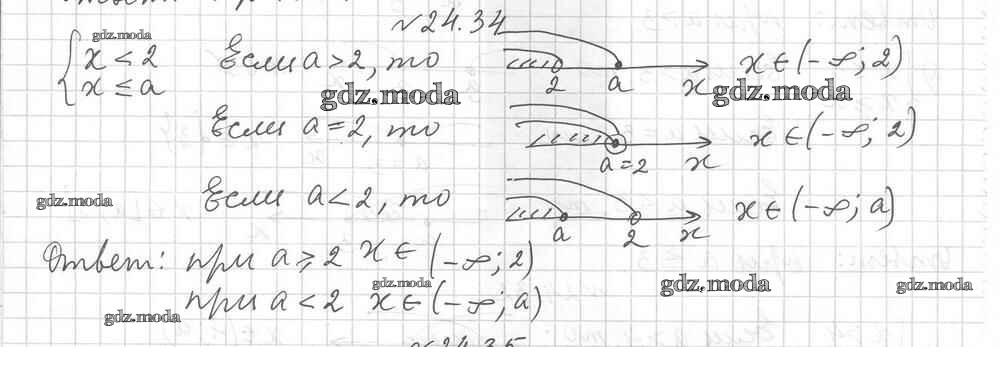 №24.34
gdz.moda
{ x < 2
x ≤ a
Если a > 2, то
2 a x
x ∈ (-∞; 2)
gdz.moda gdz.moda
Если a = 2, то
a = 2 x
x ∈ (-∞; 2)
gdz.moda
Если a < 2, то
a 2 x
x ∈ (-∞; a)
Ответ: при a ⩾ 2 x ∈ (-∞; 2)
gdz.moda gdz.moda gdz.moda
при a < 2 x ∈ (-∞; a)
gdz.moda
№24.35